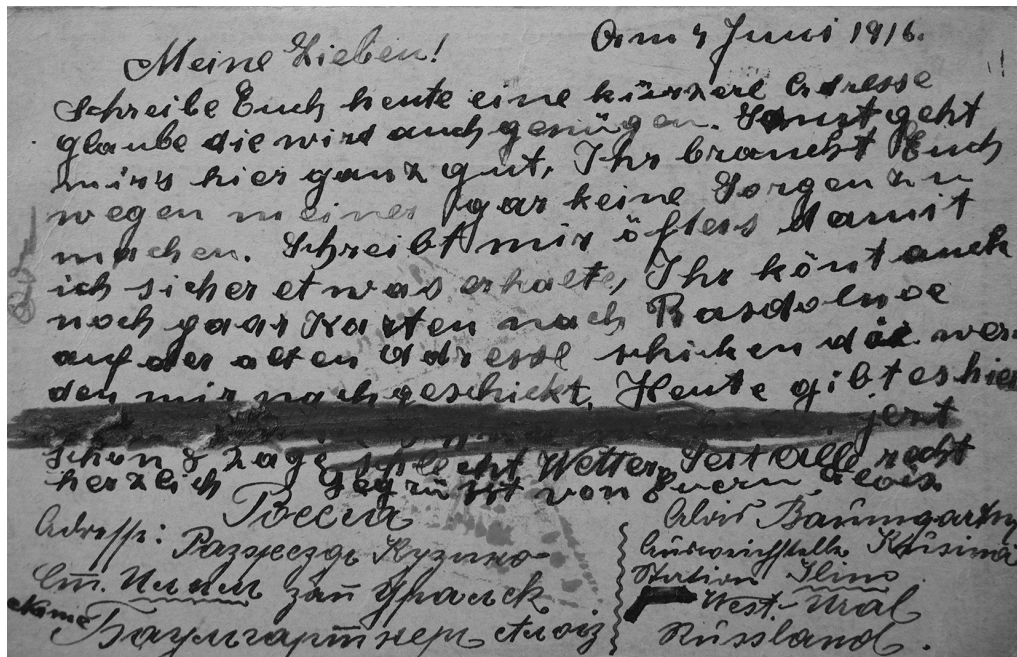 Am 4 Juni 1916.
Meine Lieben!
Schreibe Euch heute eine kürzere Adresse
glaube die wird auch genügen. Sonst geht
mirs hier ganz gut, Ihr braucht Euch
wegen meiner gar keine Sorgen zu
machen. Schreibt mir öfters damit
ich sicher etwas erhalte, Ihr könt auch
noch paar Karten nach Rasdolnoe
auf der alten Adresse schicken die wer-
den mir nachgeschickt. Heute gibt es hier
jezt
schon 8 Tage schlecht Wetter. Seit alle recht
herzlich Gegrüsst von Euern Alois
Россия
Adresse:
Разъездъ Кузино
Ст. Илим зап Уральск
Баумгартнер Алоиз
Alois Baumgartner
Ausweichstelle
Station Ilino
West-Ural
Russland.